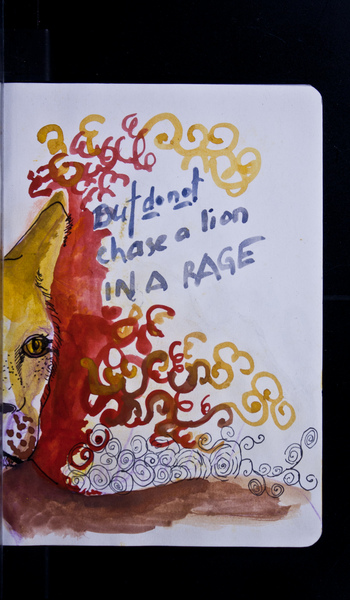 But do not
chase a lion
IN A RAGE